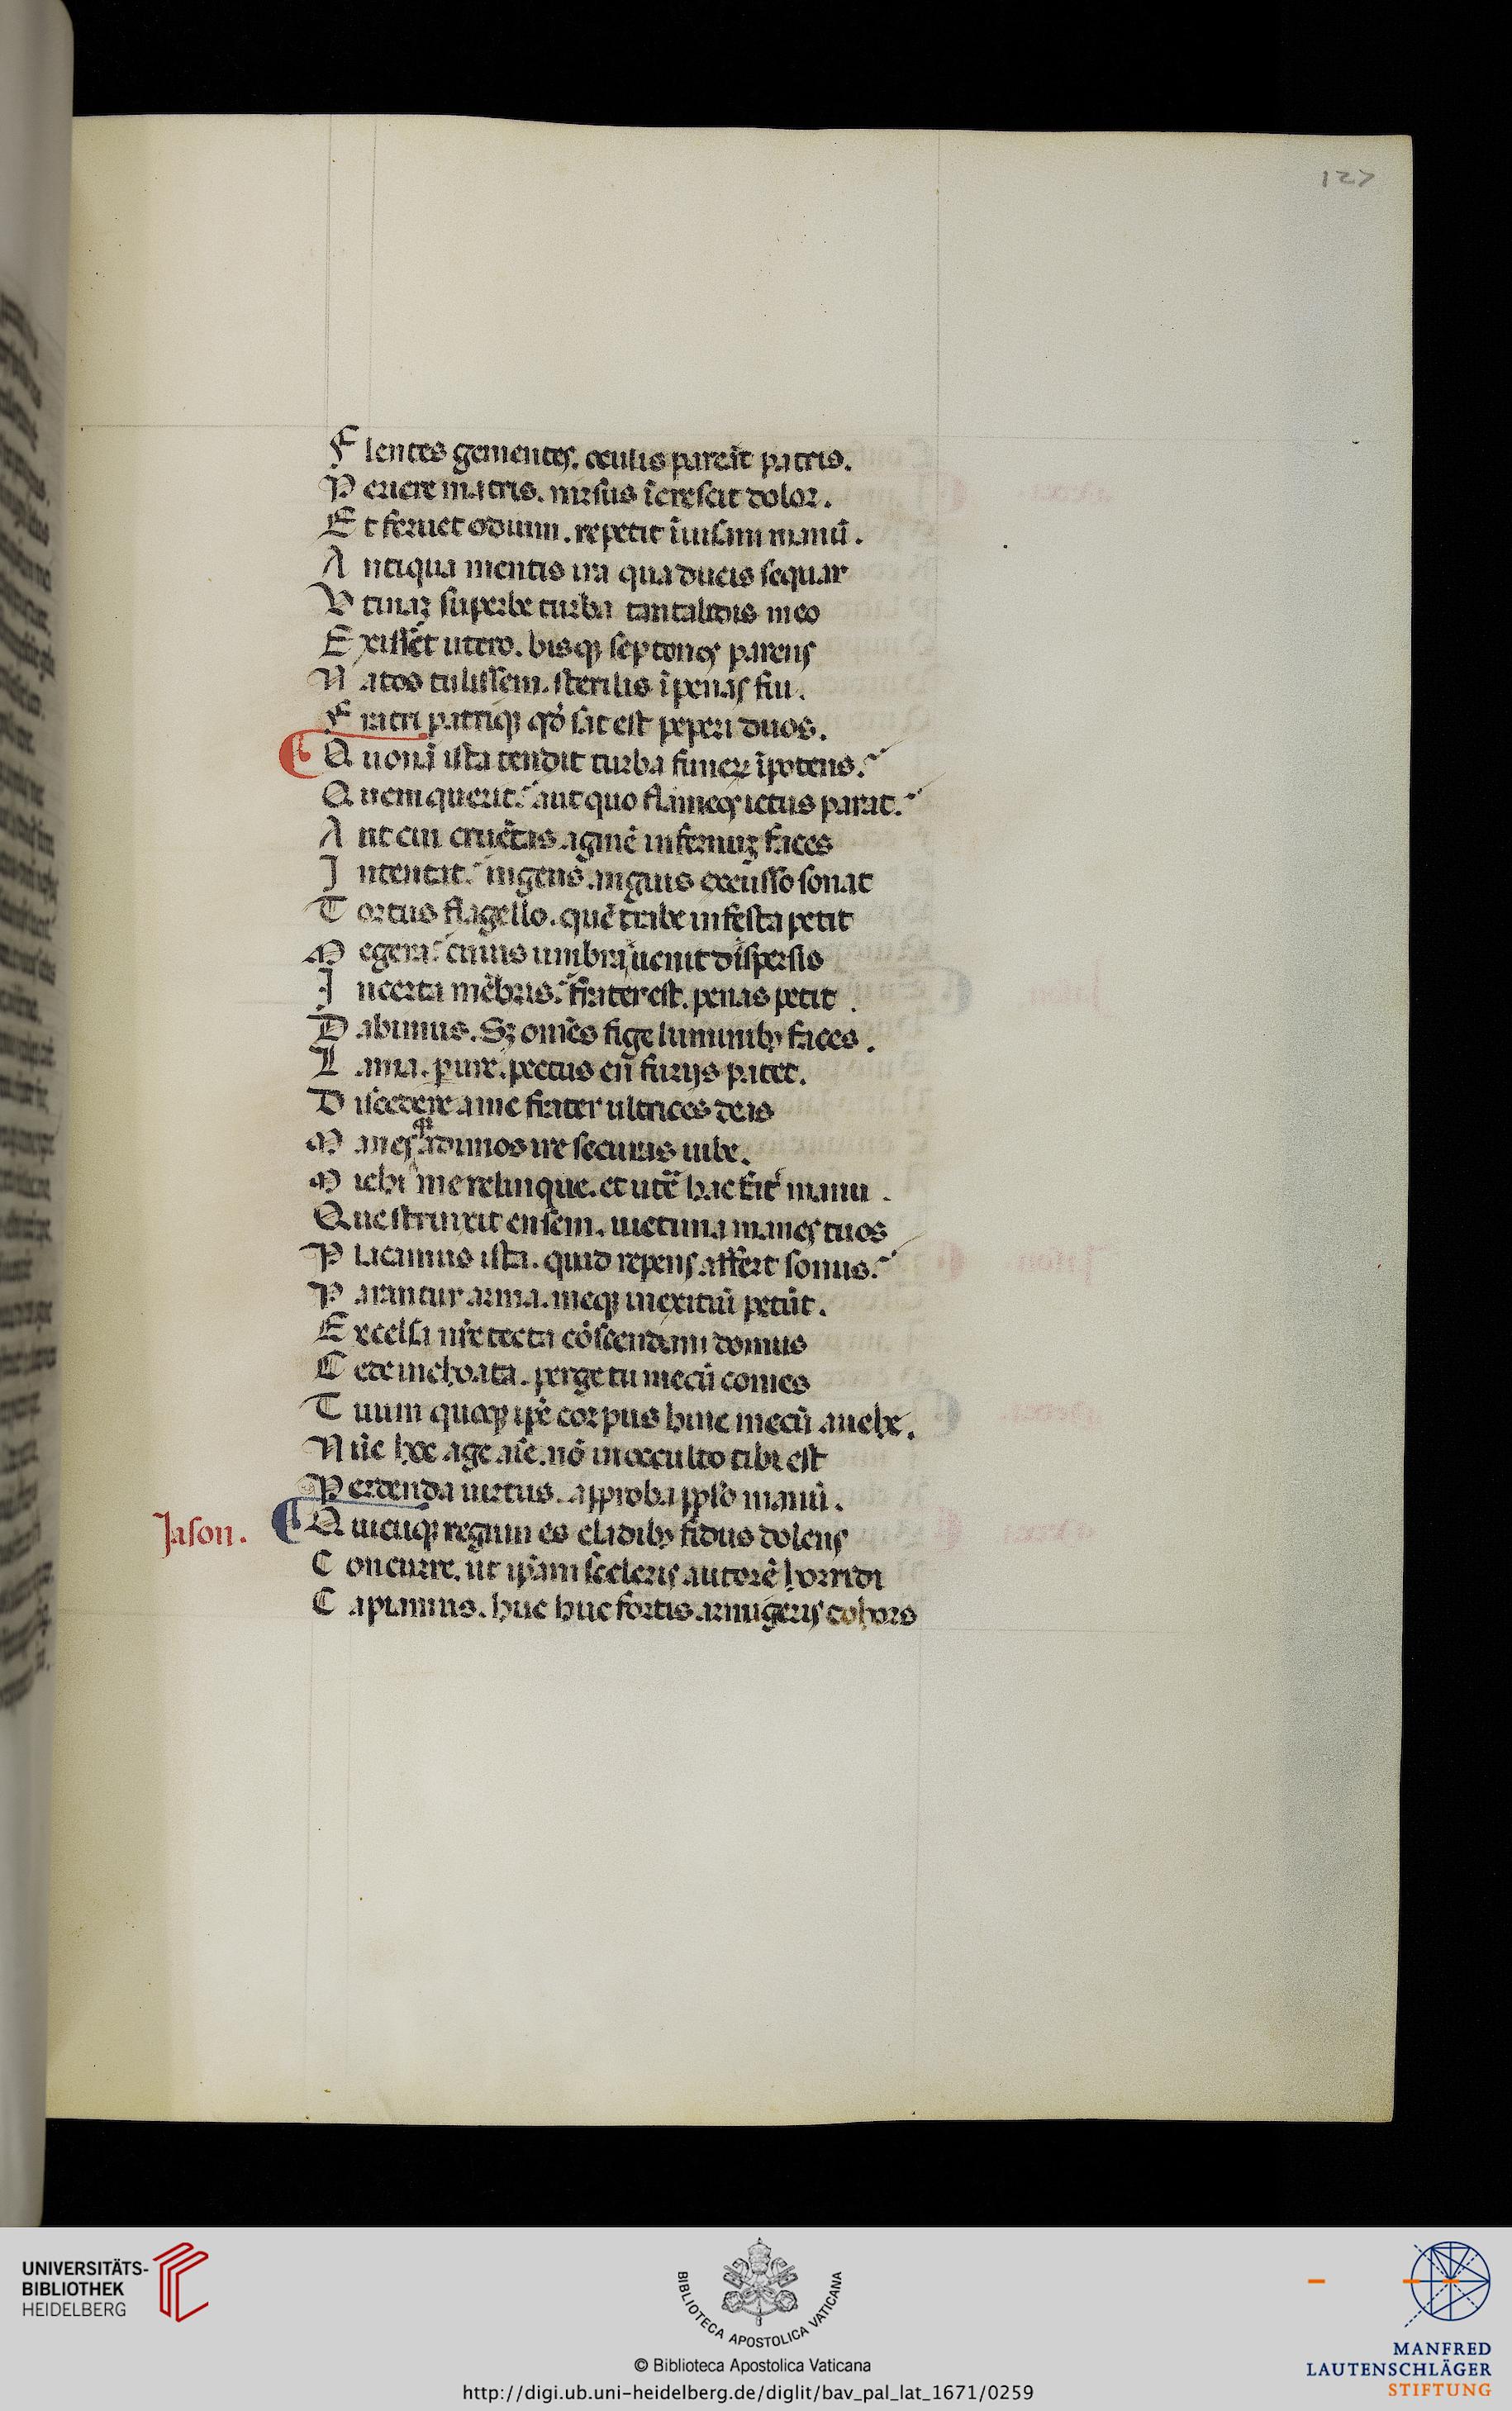 127
Flentes gementes. oculis pareāt patris.
Periere matris. rursus īcrescit dolor.
Et feruet odium. repetit īuisam manū.
Antiqua mentis ira qua ducis sequar
Vtinaꝫ superbe turba tantalidis meo
Exissēt utero. bisqꝫ septenos parens
Natos tulissem. sterilis ī penas fui.
Fratri patriqꝫ qđ sat est peperi duos.
Quonā ista tendit turba funeꝝ īpotens.
Quem querit. aut quo flāmeos ictus parat.
Aut cui cruētas agmē infernuꝫ faces
Intentat. ingens anguis excusso sonat
Tortus flagello. quē trabe infesta petit
Megera. cuius umbra uenit dispersis
Incerta mēbris. frater est. penas petit.
Dabimus. Sꝫ omēs fige luminibꝫ faces.
Lania. ꝑure. pectus eñ furijs patet.
Discedere a me frater ultrices deas
Manesqꝫ ad imos ire securas iube.
Michi me relinque. et utē hac fr̄ manu.
Que strinxit ensem. uictima manes tuos
Placamus ista. quid repens affert sonus.
Parantur arma. meqꝫ in exitiū petūt.
Excelsa nr̄e tecta cōscendam domus
Cede inchoata. perge tu mecū comes
Tuum quoqꝫ ip̄e corpus hinc mecū aueham.
Nūc hoc age aīe. nō in occulto tibi est
Perdenda uirtus. approba pplo manū.
Jason.
Quicūqꝫ regum es cladibꝫ fidus dolens
Concurre. ut ip̄am sceleris autorē horridi
Capiamus. huc huc fortis armigeris cohors
UNIVERSITÄTS-
BIBLIOTHEK
HEIDELBERG
BIBLIOTECA APOSTOLICA VATICANA
© Biblioteca Apostolica Vaticana
http://digi.ub.uni-heidelberg.de/diglit/bav_pal_lat_1671/0259
MANFRED
LAUTENSCHLÄGER
STIFTUNG